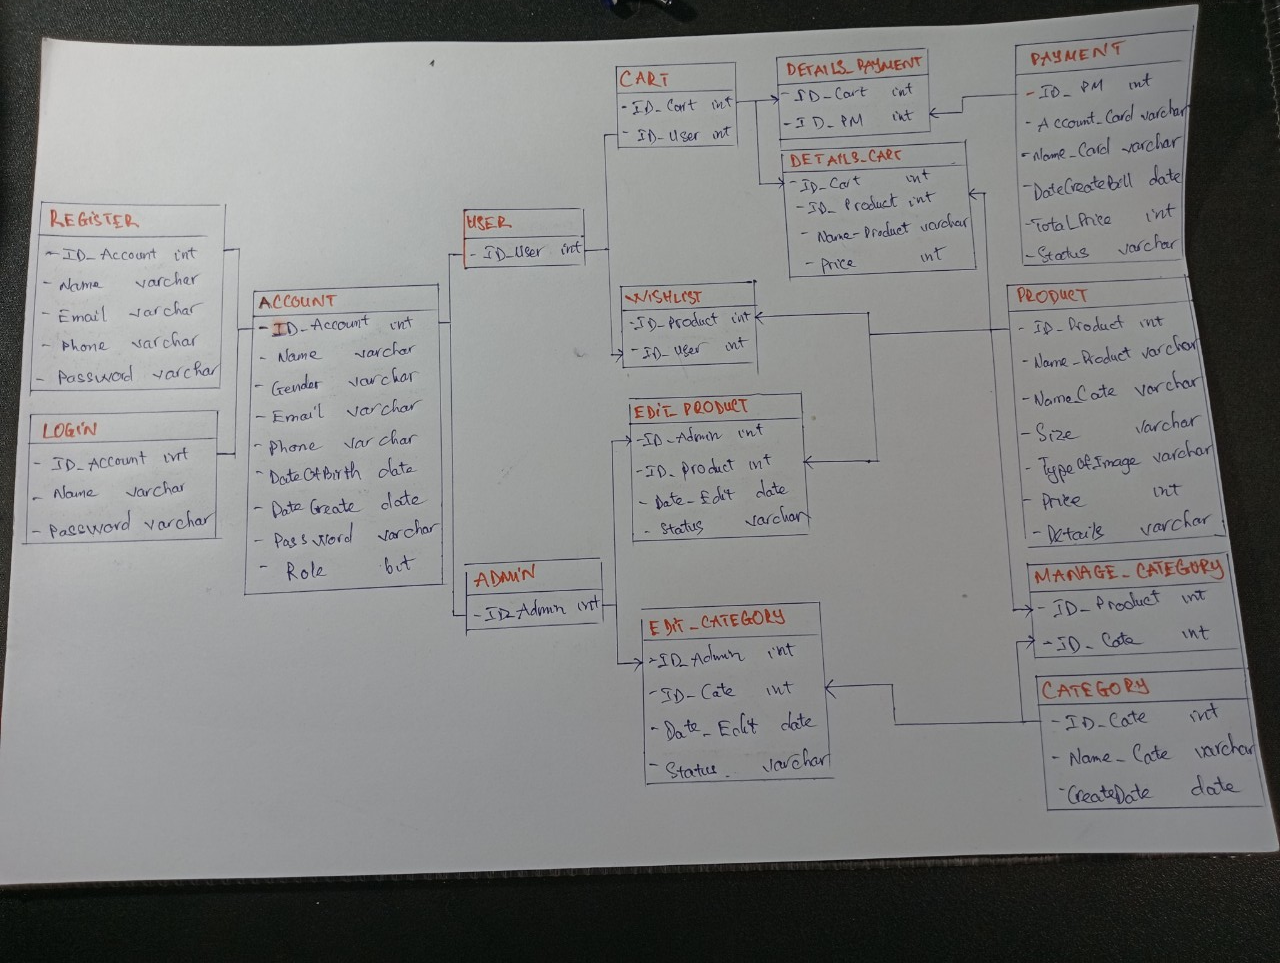 REGISTER
- ID_Account int
- Name varchar
- Email varchar
- Phone varchar
- Password varchar
LOGIN
- ID_Account int
- Name varchar
- Password varchar
ACCOUNT
- ID_Account int
- Name varchar
- Gender varchar
- Email varchar
- Phone varchar
- DateOfBirth date
- DateCreate date
- Password varchar
- Role bit
USER
- ID_User int
ADMIN
- ID_Admin int
CART
- ID_Cart int
- ID_User int
WISHLIST
- ID_Product int
- ID_User int
EDIT_PRODUCT
- ID_Admin int
- ID_Product int
- Date_Edit date
- Status varchar
EDIT_CATEGORY
- ID_Admin int
- ID_Cate int
- Date_Edit date
- Status varchar
DETAILS_PAYMENT
- ID_Cart int
- ID_PM int
DETAILS_CART
- ID_Cart int
- ID_Product int
- Name_Product varchar
- Price int
PAYMENT
- ID_PM int
- Account_Card varchar
- Name_Card varchar
- DateCreateBill date
- TotalPrice int
- Status varchar
PRODUCT
- ID_Product int
- Name_Product varchar
- Name_Cate varchar
- Size varchar
- TypeOfImage varchar
- Price int
- Details varchar
MANAGE_CATEGORY
- ID_Product int
- ID_Cate int
CATEGORY
- ID_Cate int
- Name_Cate varchar
- CreateDate date